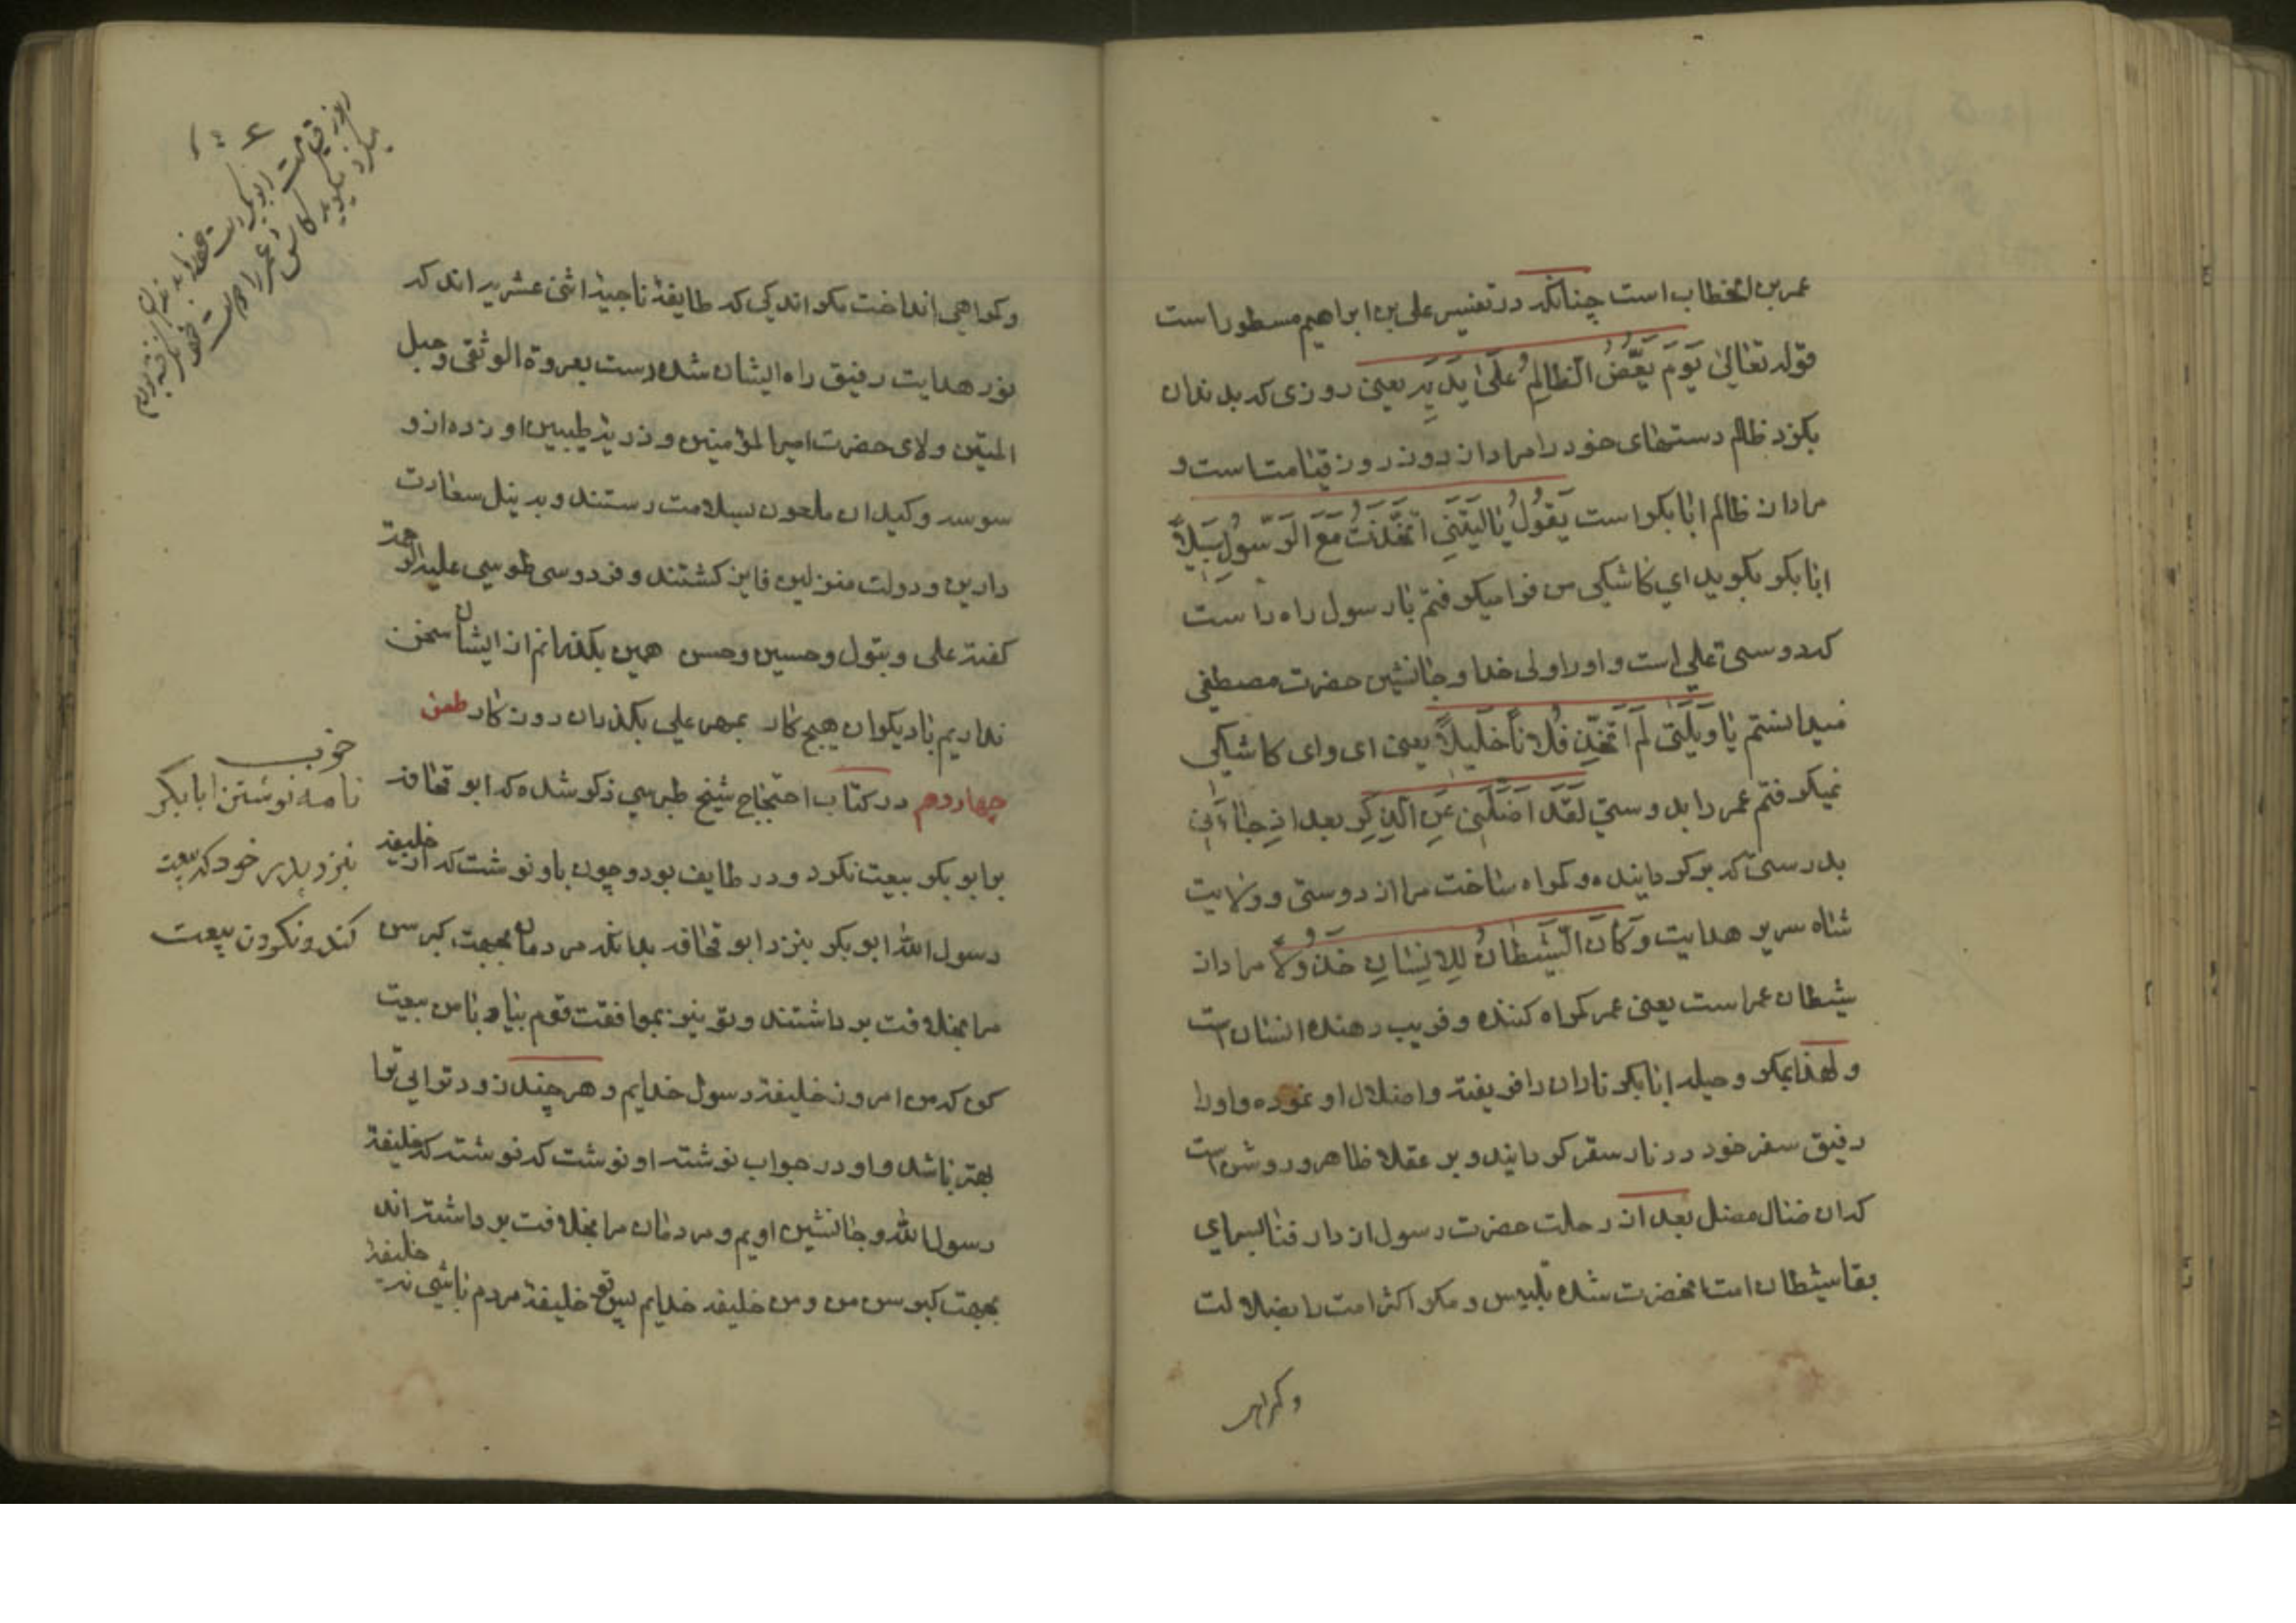 عمر بن الخطاب است چنانکه در تفسیر علی بن ابراهیم مسطور است
قوله تعالی یَوْمَ یَعَضُّ الظالِمُ عَلَی یَدَیْهِ یعنی روزی که بدندان
بکزد ظالم دستهای خود را مراد از روز روز قیامت است و
مراد از ظالم ابابکر است یَقُولُ یَالَیْتَنِی اتَّخَذْتُ مَعَ الرَّسُولِ سَبِیلاً
ابابکر بکوید ای کاشکی من فرا میکرفتم با رسول راه راست
که دوستی علی است و او را ولی خدا و جانشین حضرت مصطفی
میدانستم یَاوَیْلَتَی لَمْ اَتَّخِذْ فُلَاناً خَلِیلاً یعنی ای وای کاشکی
نمیکرفتم عمر را بدوستی لَقَدْ اَضَلَّنِی عَنِ الذِّکْرِ بعد اذ جَاءَنِی
بدرستی که برکردانیده و کمراه ساخت مرا از دوستی و ولایت
شاه سریر هدایت وَکَانَ الشَّیْطَانُ لِلْاِنْسَانِ خَذُولاً مراد از
شیطان عمر است یعنی عمر کمراه کننده و فریب دهنده انسان است
و لهذا بمکر و حیله ابابکر نادان را فریفته و اضلال او نموده و او را
رفیق سفر خود در نار سقر کردانید و بر عقلا ظاهر و روشن است
که ان ضال مضل بعد از رحلت حضرت رسول از دار فنا بسرای
بقا شیطان امت انحضرت شده بتلبیس و مکر اکثر امت را بضلالت
و کمراهی
و کمراهی انداخت مکر اندکی که طایفهٔ ناجیهٔ اثنی عشریه اند که
نور هدایت رفیق راه ایشان شده دست بعروة الوثقی و حبل
المتین ولای حضرت امیر المؤمنین و ذریهٔ طیبین او زده از و
سوسه و کید ان ملعون بسلامت رستند و بنیل سعادت
دارین و دولت منزلین فایز کشتند و فردوسی طوسی علیه الرحمة
کفته علی و بتول و حسین و حسن همین بکذرانم از ایشان سخن
نداریم با دیکران هیچ کار بمهر علی بکذران روزکار طعن
چهاردهم در کتاب احتجاج شیخ طبرسی ذکر شده که ابو قحافه
بر ابو بکر بیعت نکرد و در طایف بود و چون باو نوشت که از خلیفه
رسول الله ابو بکر بنزد ابو قحافه بدانکه مردمان بجهت کبر سن
مرا بخلافت برداشتند و تو نیز بموافقت قوم بیا و با من بیعت
کن که من امروز خلیفهٔ رسول خدایم و هر چند زودتر ایی ترا
بهتر باشد و او در جواب نوشته او نوشت که نوشته که خلیفهٔ
رسول الله و جانشین اویم و مردمان مرا بخلافت برداشته اند
بجهت کبر سن من و من خلیفه خدایم پس تو خلیفهٔ مردم باشی نه خلیفهٔ
خوب
نامه نوشتن ابابکر
بنزد پدر خود که بیعت
کند و نکردن بیعت